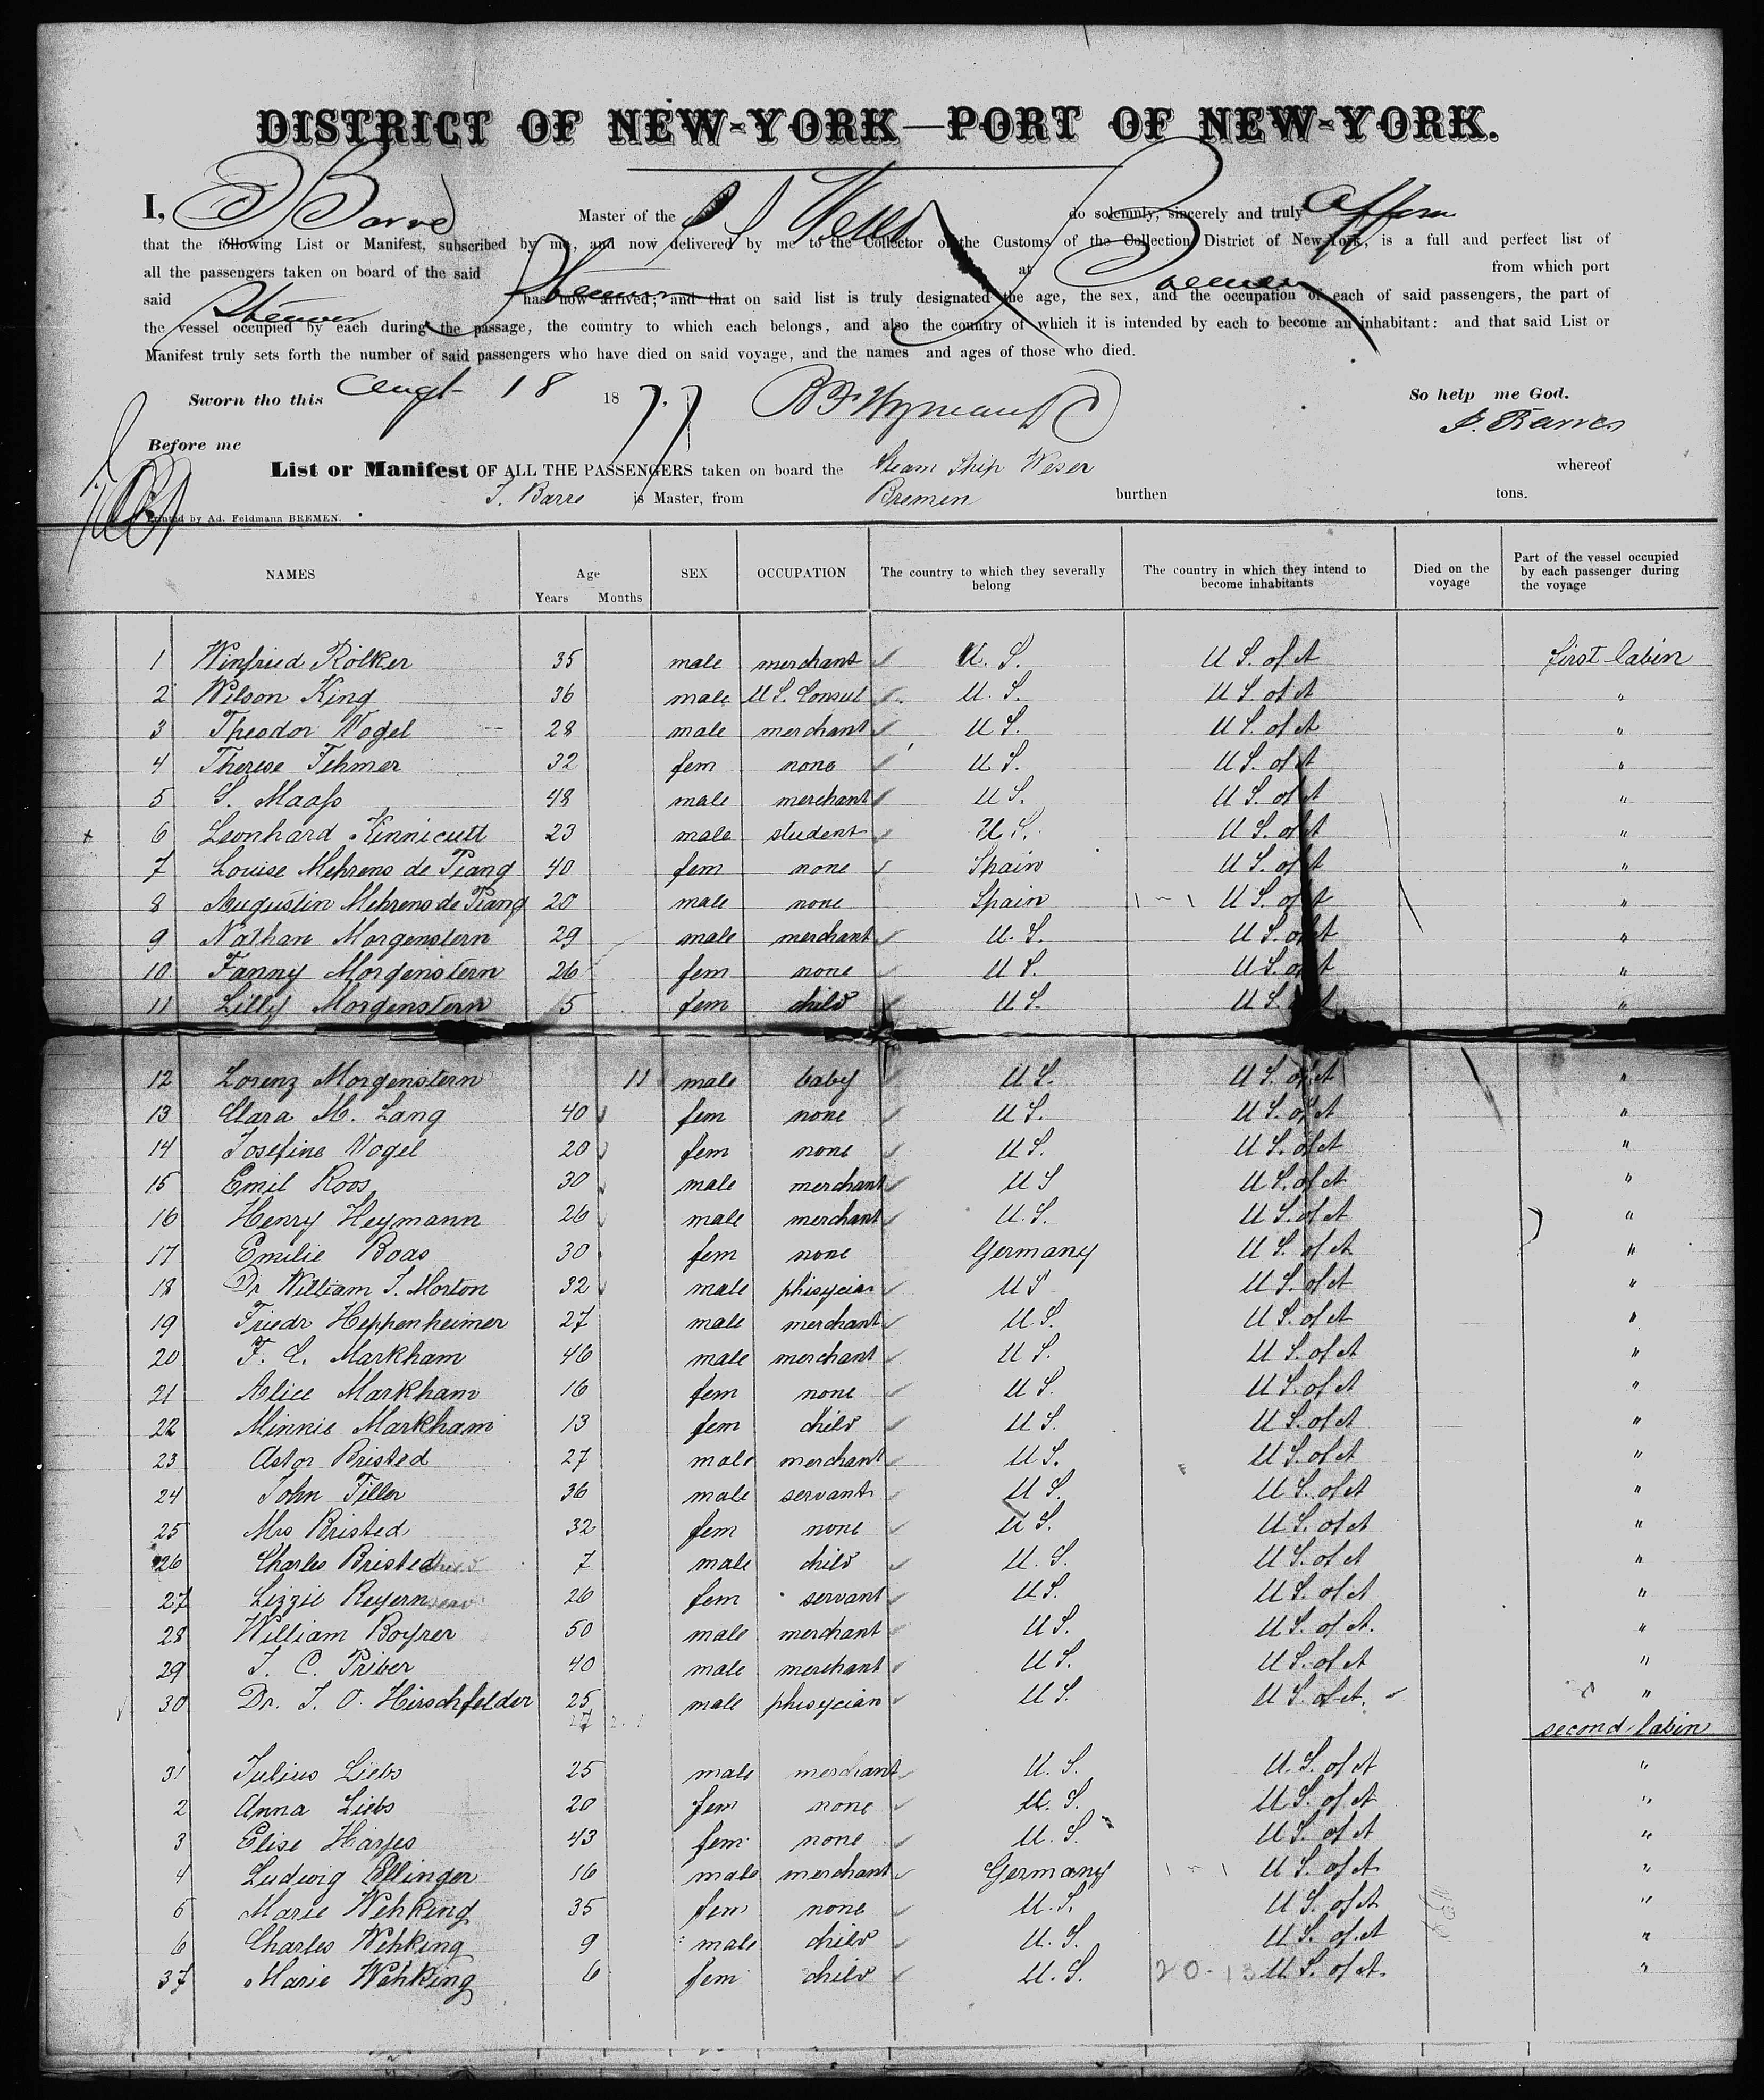 DISTRICT OF NEW-YORK—PORT OF NEW-YORK.
I, Barre Master of the S S Weser do solemnly, sincerely and truly affirm
that the following List or Manifest, subscribed by me, and now delivered by me to the Collector of the Customs of the Collection District of New-York, is a full and perfect list of
all the passengers taken on board of the said Steamer at Bremen from which port
said Steamer has now arrived; and that on said list is truly designated the age, the sex, and the occupation of each of said passengers, the part of
the vessel occupied by each during the passage, the country to which each belongs, and also the country of which it is intended by each to become an inhabitant: and that said List or
Manifest truly sets forth the number of said passengers who have died on said voyage, and the names and ages of those who died.
Sworn tho this Augt 18 1877 So help me God.
Before me
List or Manifest OF ALL THE PASSENGERS taken on board the Steam Ship Weser whereof
Barre is Master, from Bremen burthen tons.
Printed by Ad. Feldmann BREMEN.
NAMES Age Years Months SEX OCCUPATION The country to which they severally belong The country in which they intend to become inhabitants Died on the voyage Part of the vessel occupied by each passenger during the voyage
1 Winfried Rölker 35 male merchant U. S. U S. of A first Cabin
2 Wilson King 36 male U S. Consul U. S. U S. of A "
3 Theodor Vogel 28 male merchant U S. U S. of A "
4 Therese Fehmer 32 fem none U S. U S. of A "
5 S. Maaſs 48 male merchant U S. U S. of A "
6 Leonhard Kinnicutt 23 male student U S. U S. of A "
7 Louise Mehrens de Piang 40 fem none Spain U S. of A "
8 Augustin Mehrens de Piang 20 male none Spain U S. of A "
9 Nathan Morgenstern 29 male merchant U. S. U S. of A "
10 Fanny Morgenstern 26 fem none U S. U S. of A "
11 Lilly Morgenstern 5 fem child U S. U S. of A "
12 Lorenz Morgenstern 11 male baby U S. U S. of A "
13 Clara M. Lang 40 fem none U S. U S. of A "
14 Josefine Vogel 20 fem none U S. U S. of A "
15 Emil Roos 30 male merchant U S U S. of A "
16 Henry Heymann 26 male merchant U. S. U S. of A "
17 Emilie Boas 30 fem none Germany U S. of A "
18 Dr William J. Morton 32 male phisycian U S U S. of A "
19 Friedr Heppenheimer 27 male merchant U. S. U S. of A "
20 F. C. Markham 46 male merchant U S. U S. of A "
21 Alice Markham 16 fem none U S. U S. of A "
22 Minnie Markham 13 fem child U S. U S. of A "
23 Astor Bristed 27 male merchant U S. U S. of A "
24 John Tiller 36 male servant U S. U S. of A "
25 Mrs Bristed 32 fem none U S. U S. of A "
26 Charles Bristed 7 male child U. S. U S. of A "
27 Lizzie Reyern 26 fem servant U S. U S. of A "
28 William Boyrer 50 male merchant U S. U S. of A. "
29 J. C. Priber 40 male merchant U S. U S. of A "
30 Dr. J. O. Hirschfelder 25 male phisycian U S. U S. of A. "
second Cabin
31 Julius Liebs 25 male merchant U. S. U. S. of A "
2 Anna Liebs 20 fem none U. S. U S. of A "
3 Elise Harjes 43 fem none U. S. U S. of A "
4 Ludwig Ellinger 16 male merchant Germany U S. of A "
5 Marie Wehking 35 fem none U. S. U S. of A "
6 Charles Wehking 9 male child U. S. U S. of A "
37 Marie Wehking 6 fem child U. S. 20-13 U S. of A. "